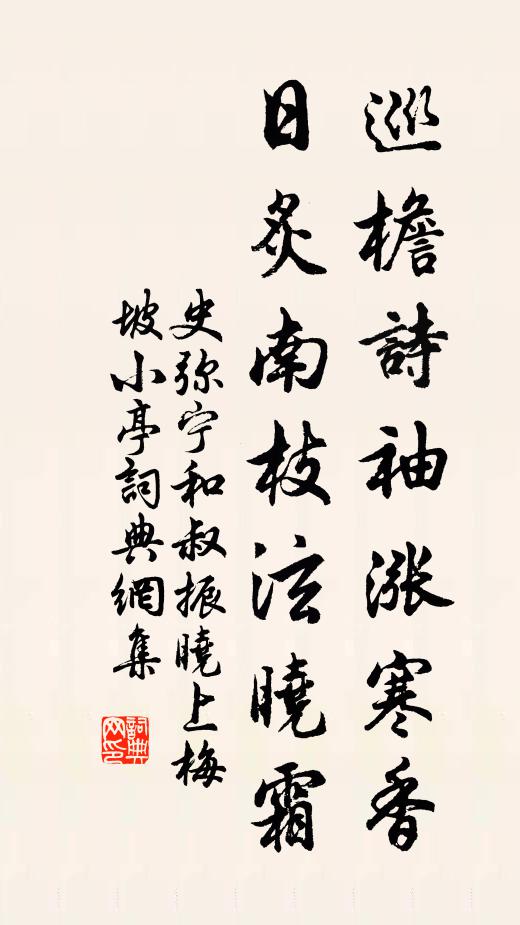 巡檐詩袖漲寒香
日炙南枝泫曉霜
史弥宁和叔振曉上梅
坡小亭詞典網集
詞典网印